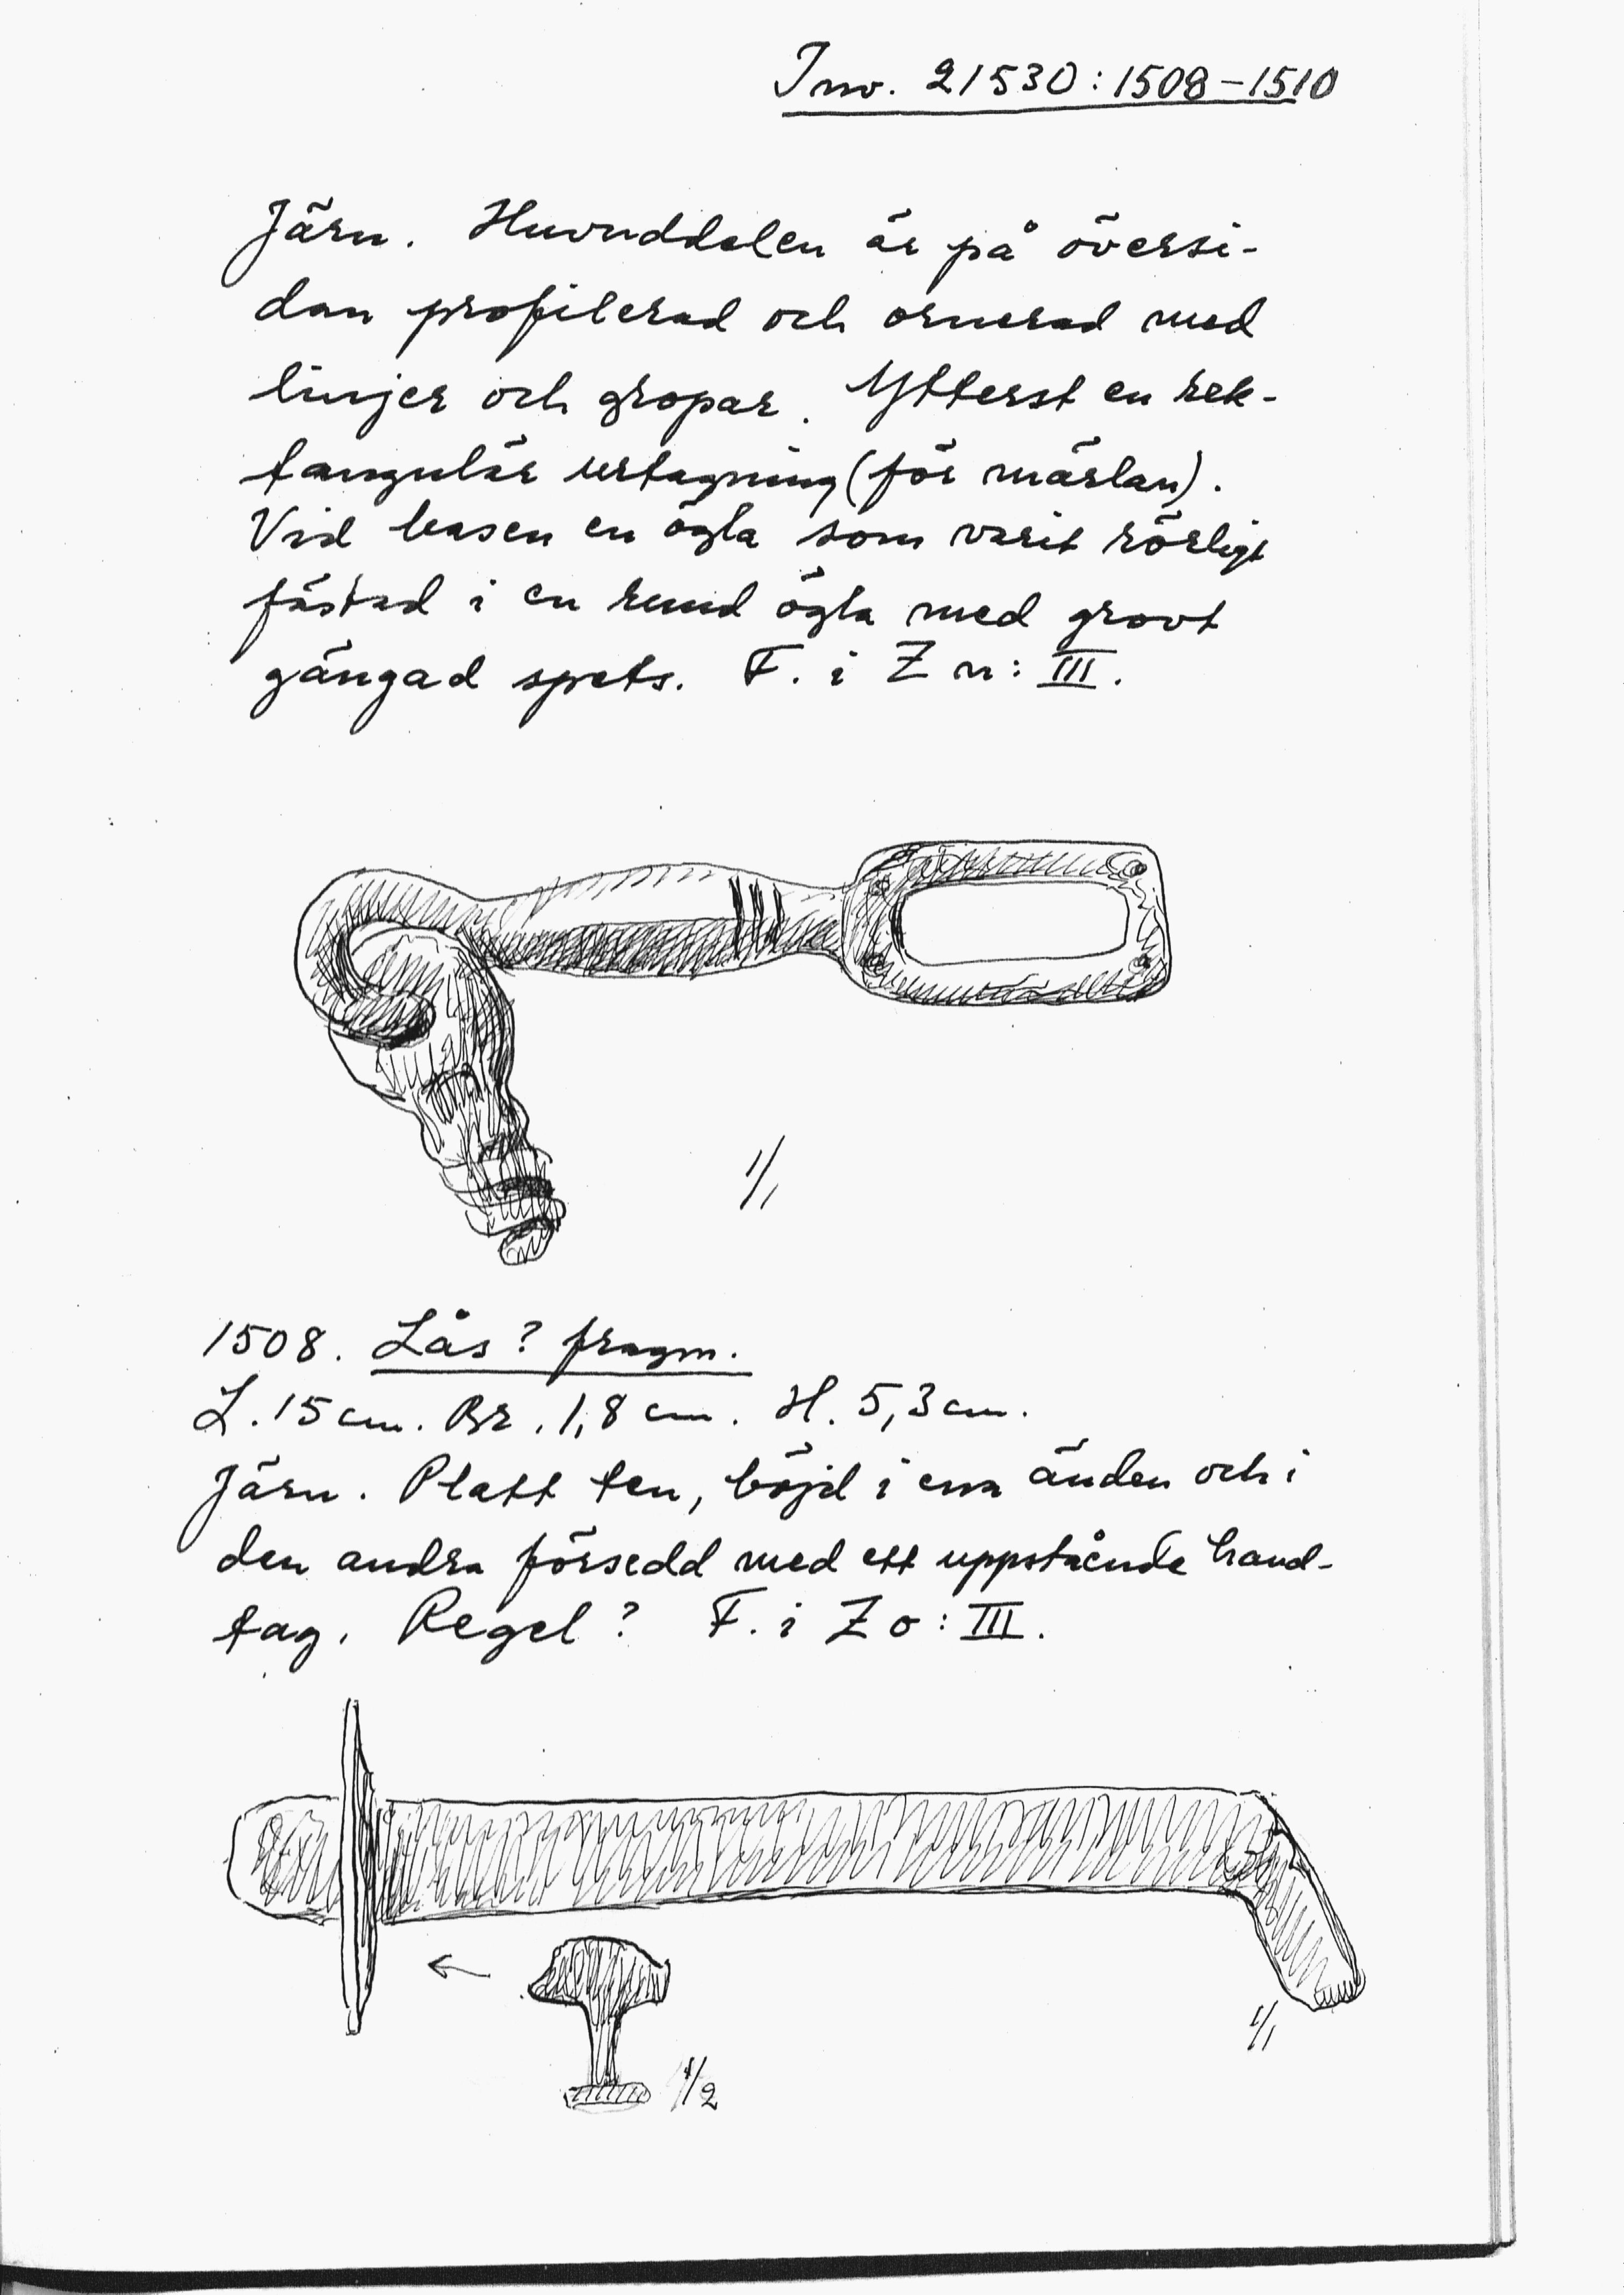 Inv. 21530:1508-1510
Järn. Huvuddelen är på översi-
dan profilerad och ornerad med
linjer och gropar. Ytterst en rek-
tangulär urtagning (för märlan).
Vid basen en ögla som varit rörligt
fästad i en rund ögla med grovt
gängad spets. F. i Z n: III.
1/1
1508. Lås? fragm.
L. 15 cm. Br. 1,8 cm. H. 5,3 cm.
Järn. Platt ten, böjd i ena änden och i
den andra försedd med ett uppstående hand-
tag. Regel? F. i Z o: III.
1/1
1/2